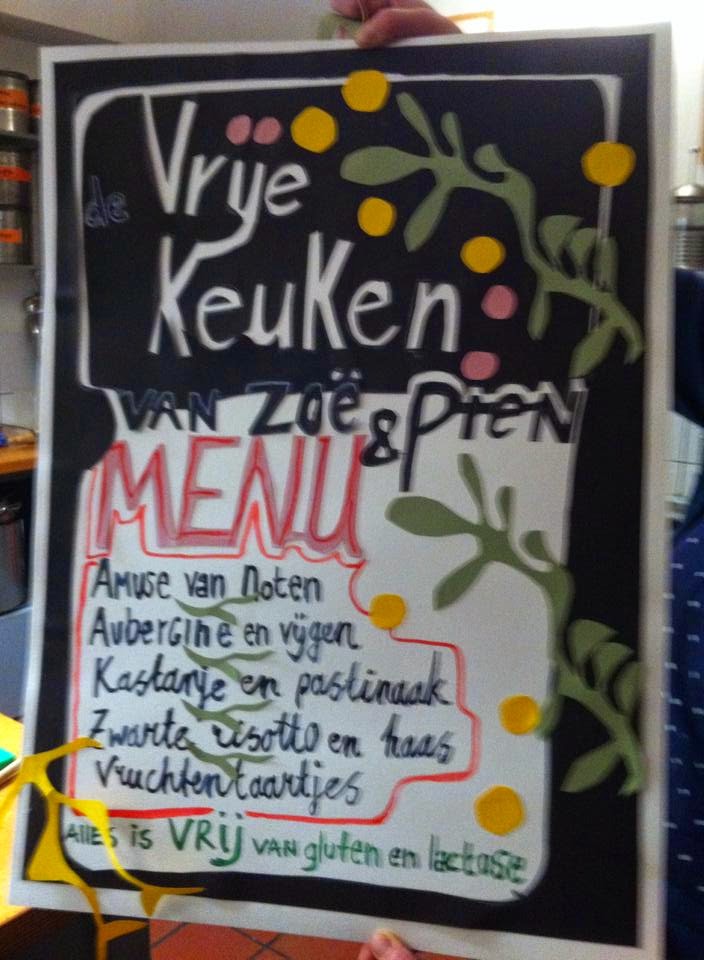 de Vrije
Keuken
VAN Zoë & Pien
MENU
Amuse van Noten
Aubergine en vijgen
Kastanje en pastinaak
Zwarte risotto en haas
Vruchtentaartjes
Alles is VRij VAN gluten en lactose